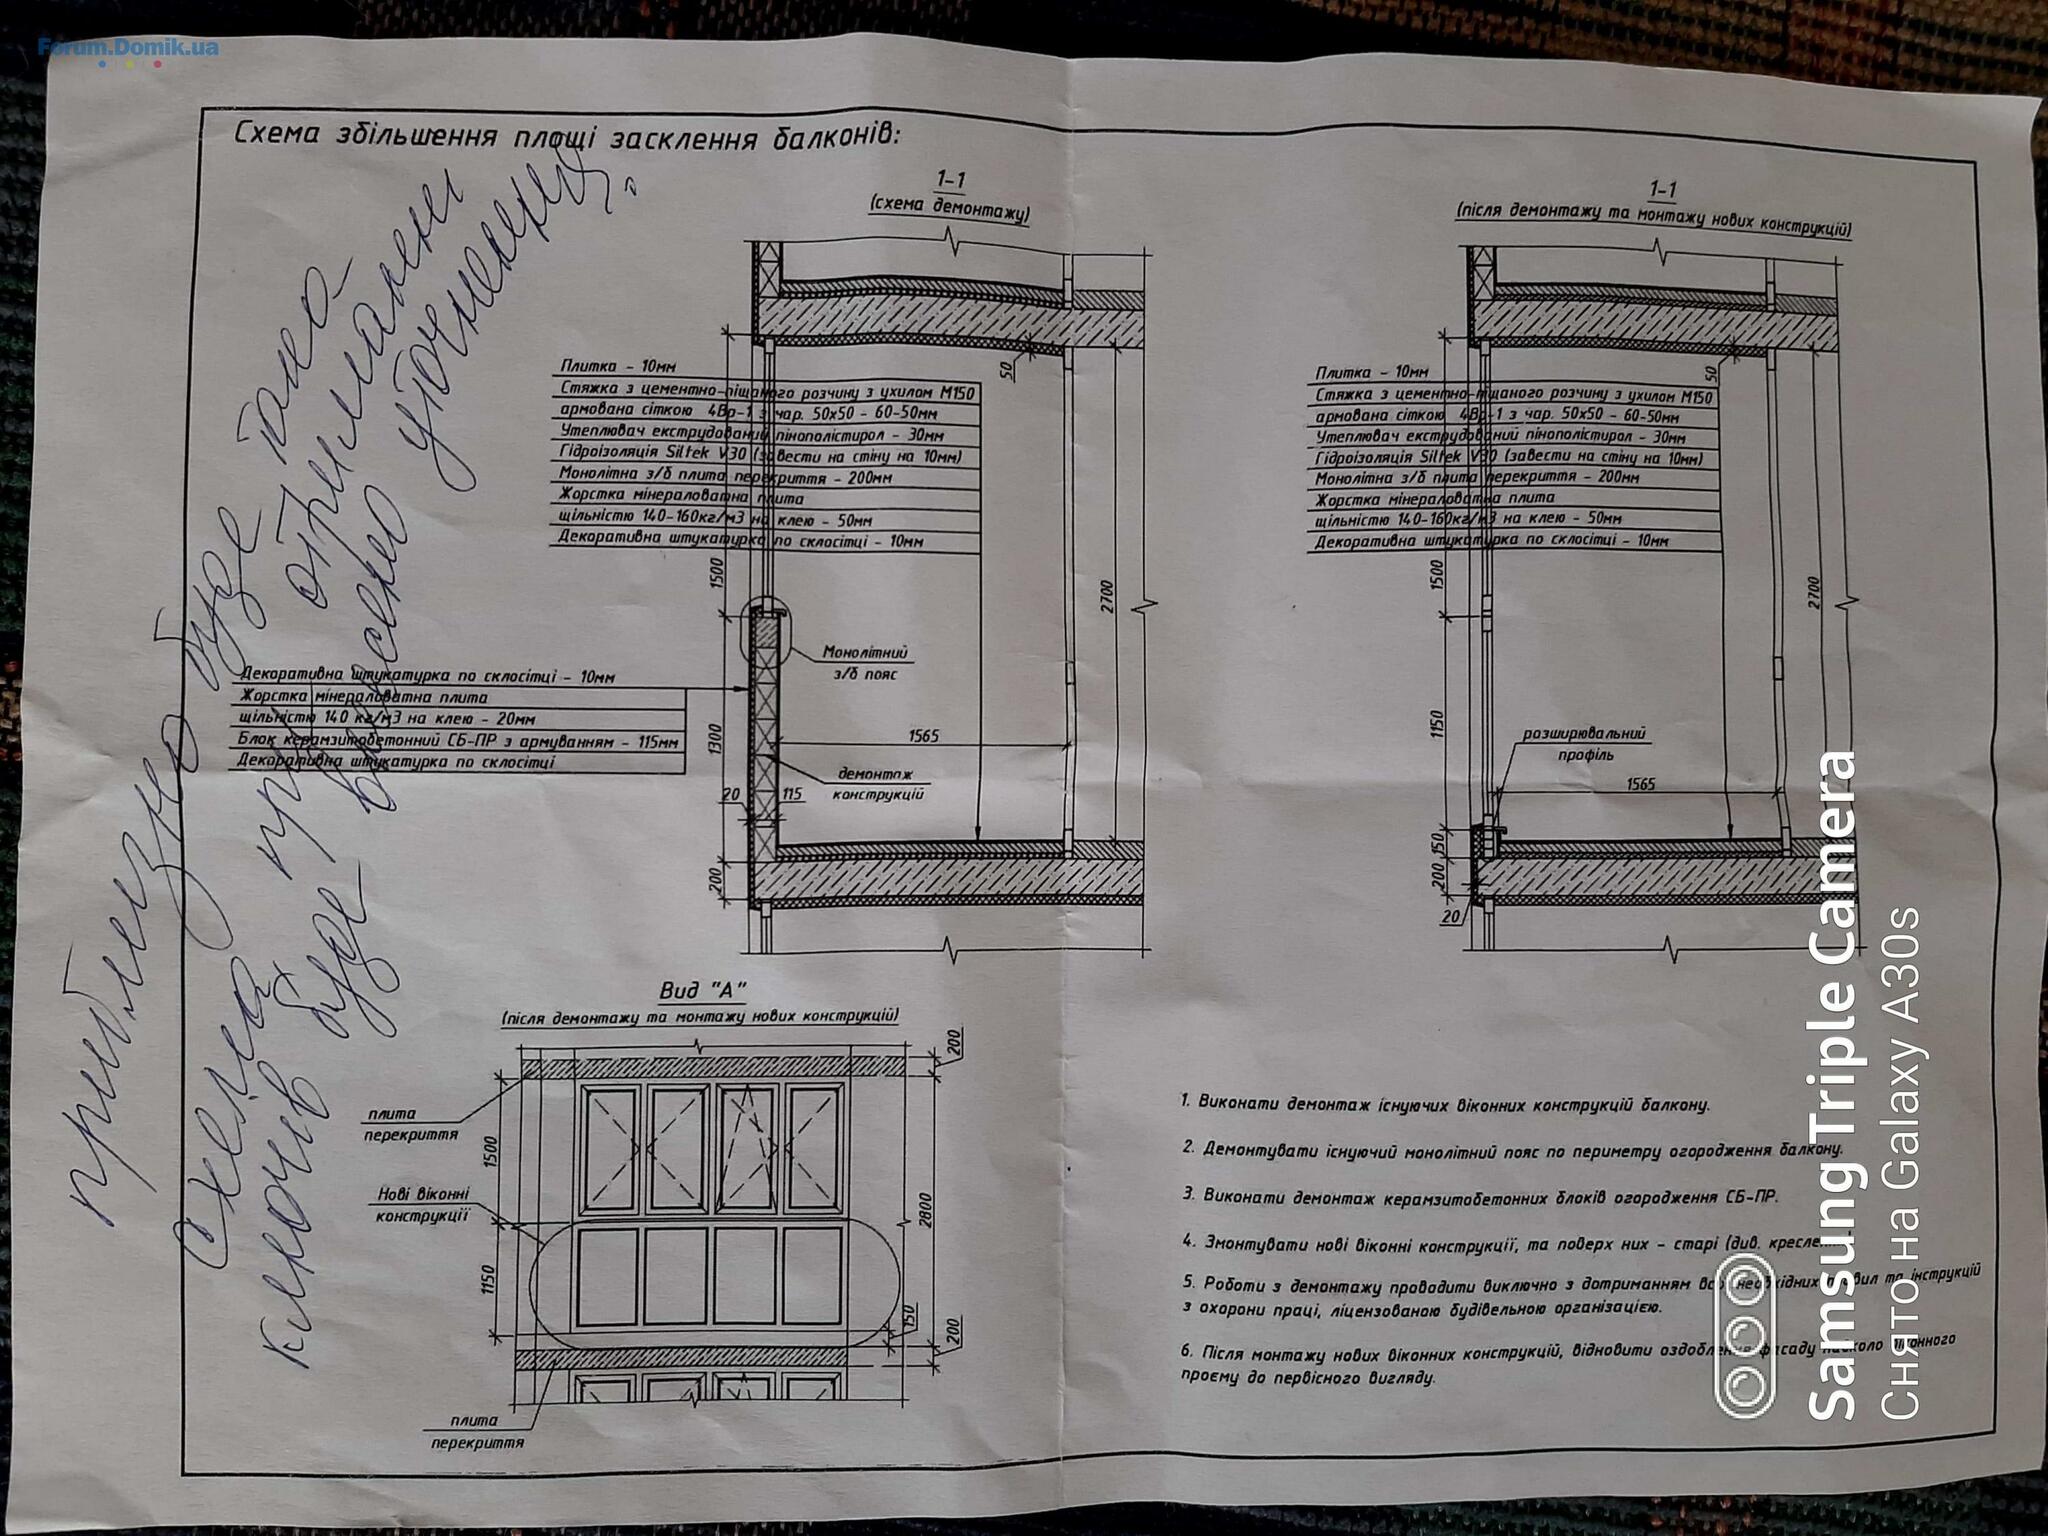 Forum.Domik.ua
Схема збільшення площі засклення балконів:
1-1
(схема демонтажу)
Плитка - 10мм
Стяжка з цементно-піщаного розчину з ухилом М150
армована сіткою 4Вр-1 з чар. 50х50 - 60-50мм
Утеплювач екструдований пінополістирол - 30мм
Гідроізоляція Siltek V30 (завести на стіну на 10мм)
Монолітна з/б плита перекриття - 200мм
Жорстка мінераловатна плита
щільністю 140-160кг/м3 на клею - 50мм
Декоративна штукатурка по склосітці - 10мм
50
1500
2700
Монолітний
з/б пояс
Декоративна штукатурка по склосітці - 10мм
Жорстка мінераловатна плита
щільністю 140 кг/м3 на клею - 20мм
Блок керамзитобетонний СБ-ПР з армуванням - 115мм
Декоративна штукатурка по склосітці
1300
1565
демонтаж
конструкцій
20
115
200
1-1
(після демонтажу та монтажу нових конструкцій)
Плитка - 10мм
Стяжка з цементно-піщаного розчину з ухилом М150
армована сіткою 4Вр-1 з чар. 50х50 - 60-50мм
Утеплювач екструдований пінополістирол - 30мм
Гідроізоляція Siltek V30 (завести на стіну на 10мм)
Монолітна з/б плита перекриття - 200мм
Жорстка мінераловатна плита
щільністю 140-160кг/м3 на клею - 50мм
Декоративна штукатурка по склосітці - 10мм
50
1500
2700
1150
розширювальний
профіль
1565
150
200
20
Вид "А"
(після демонтажу та монтажу нових конструкцій)
200
плита
перекриття
1500
Нові віконні
конструкції
2800
1150
150
200
плита
перекриття
1. Виконати демонтаж існуючих віконних конструкцій балкону.
2. Демонтувати існуючий монолітний пояс по периметру огородження балкону.
3. Виконати демонтаж керамзитобетонних блоків огородження СБ-ПР.
4. Змонтувати нові віконні конструкції, та поверх них - старі (див.
5. Роботи з демонтажу проводити виключно з дотриманням всіх необхідних правил та інструкцій
з охорони праці, ліцензованою будівельною організацією.
6. Після монтажу нових віконних конструкцій, відновити оздоблення фасаду навколо віконного
проєму до первісного вигляду.
приблизно буде така
схема при отриманні
ключів буде внесено уточнення.
Samsung Triple Camera
Снято на Galaxy A30s